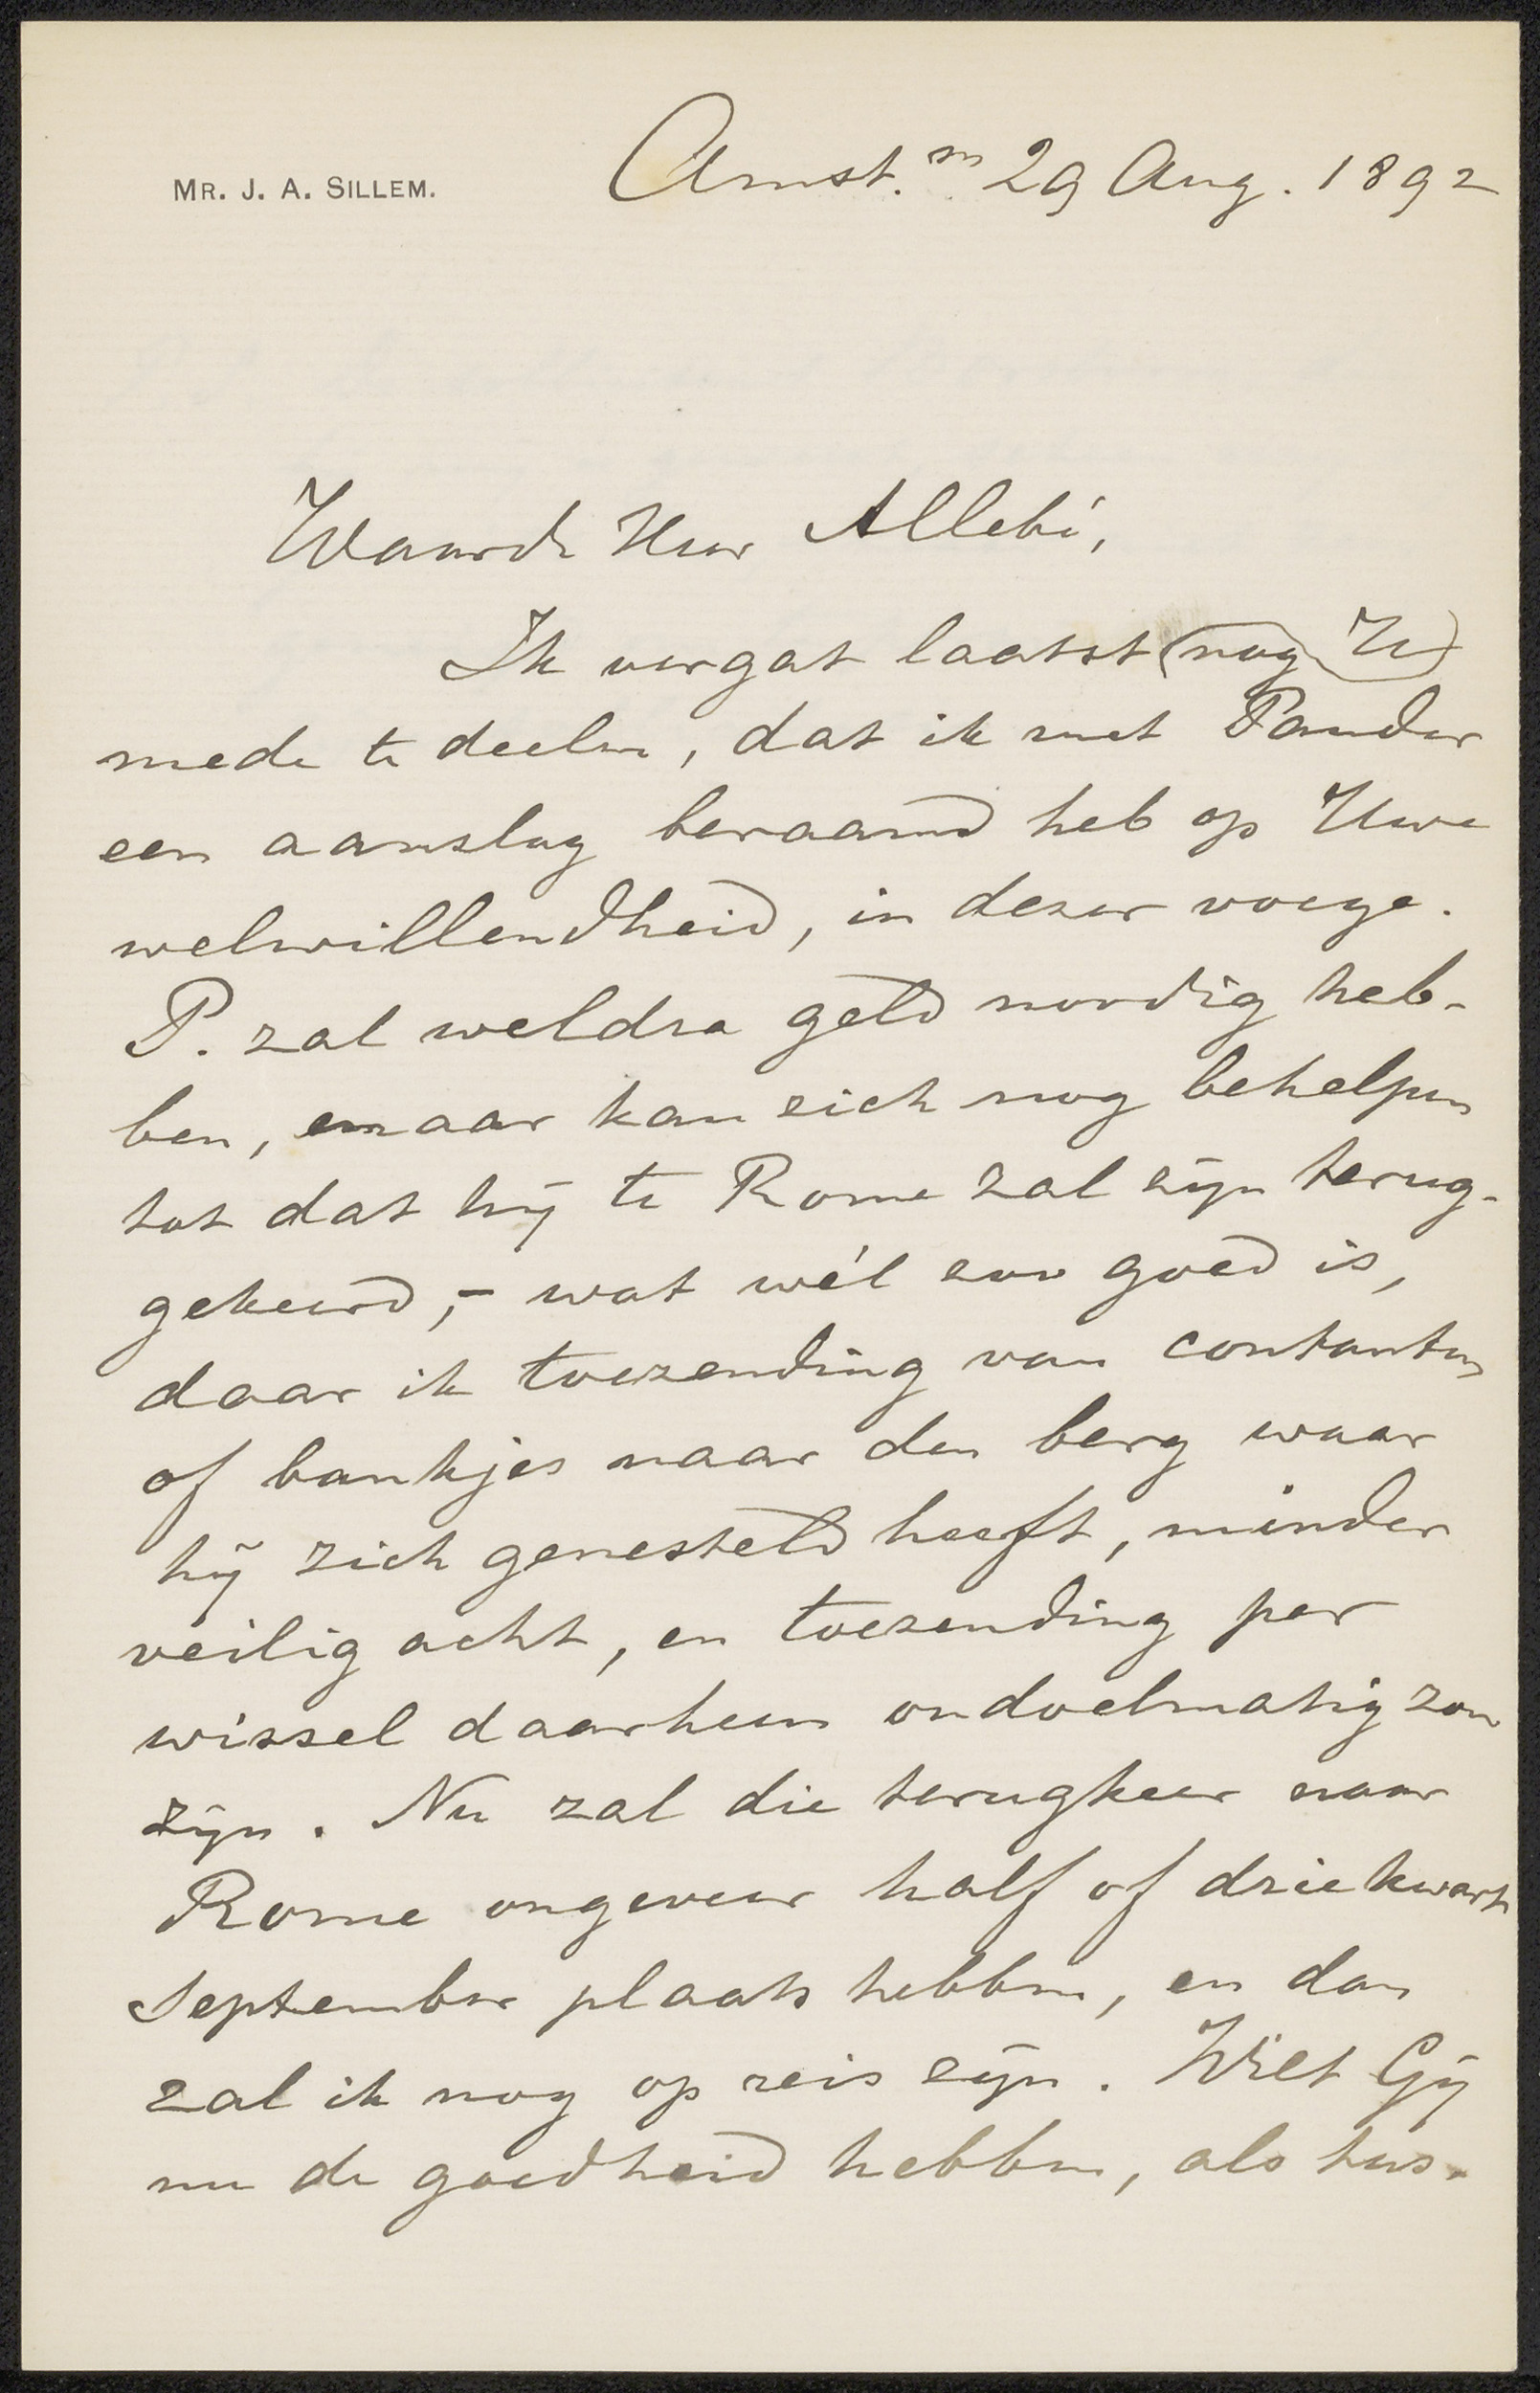 MR. J. A. SILLEM.
Amst.m 29 Aug. 1892
Waarde Heer Allebé,
Ik vergat laatst (nog U)
mede te deelen, dat ik met Pander
een aanslag beraamd heb op Uwe
welwillendheid, in dezer voege.
P. zal weldra geld noodig heb-
ben, maar kan zich nog behelpen
tot dat hij te Rome zal zijn terug-
gekeerd, – wat wél zoo goed is,
daar ik toezending van contanten
of bankjes naar den berg waar
hij zich genesteld heeft, minder
veilig acht, en toezending per
wissel daarheen ondoelmatig zou
zijn. Nu zal die terugkeer naar
Rome ongeveer half of driekwart
September plaats hebben, en dan
zal ik nog op reis zijn. Wilt Gij
nu de goedheid hebben, als tus-